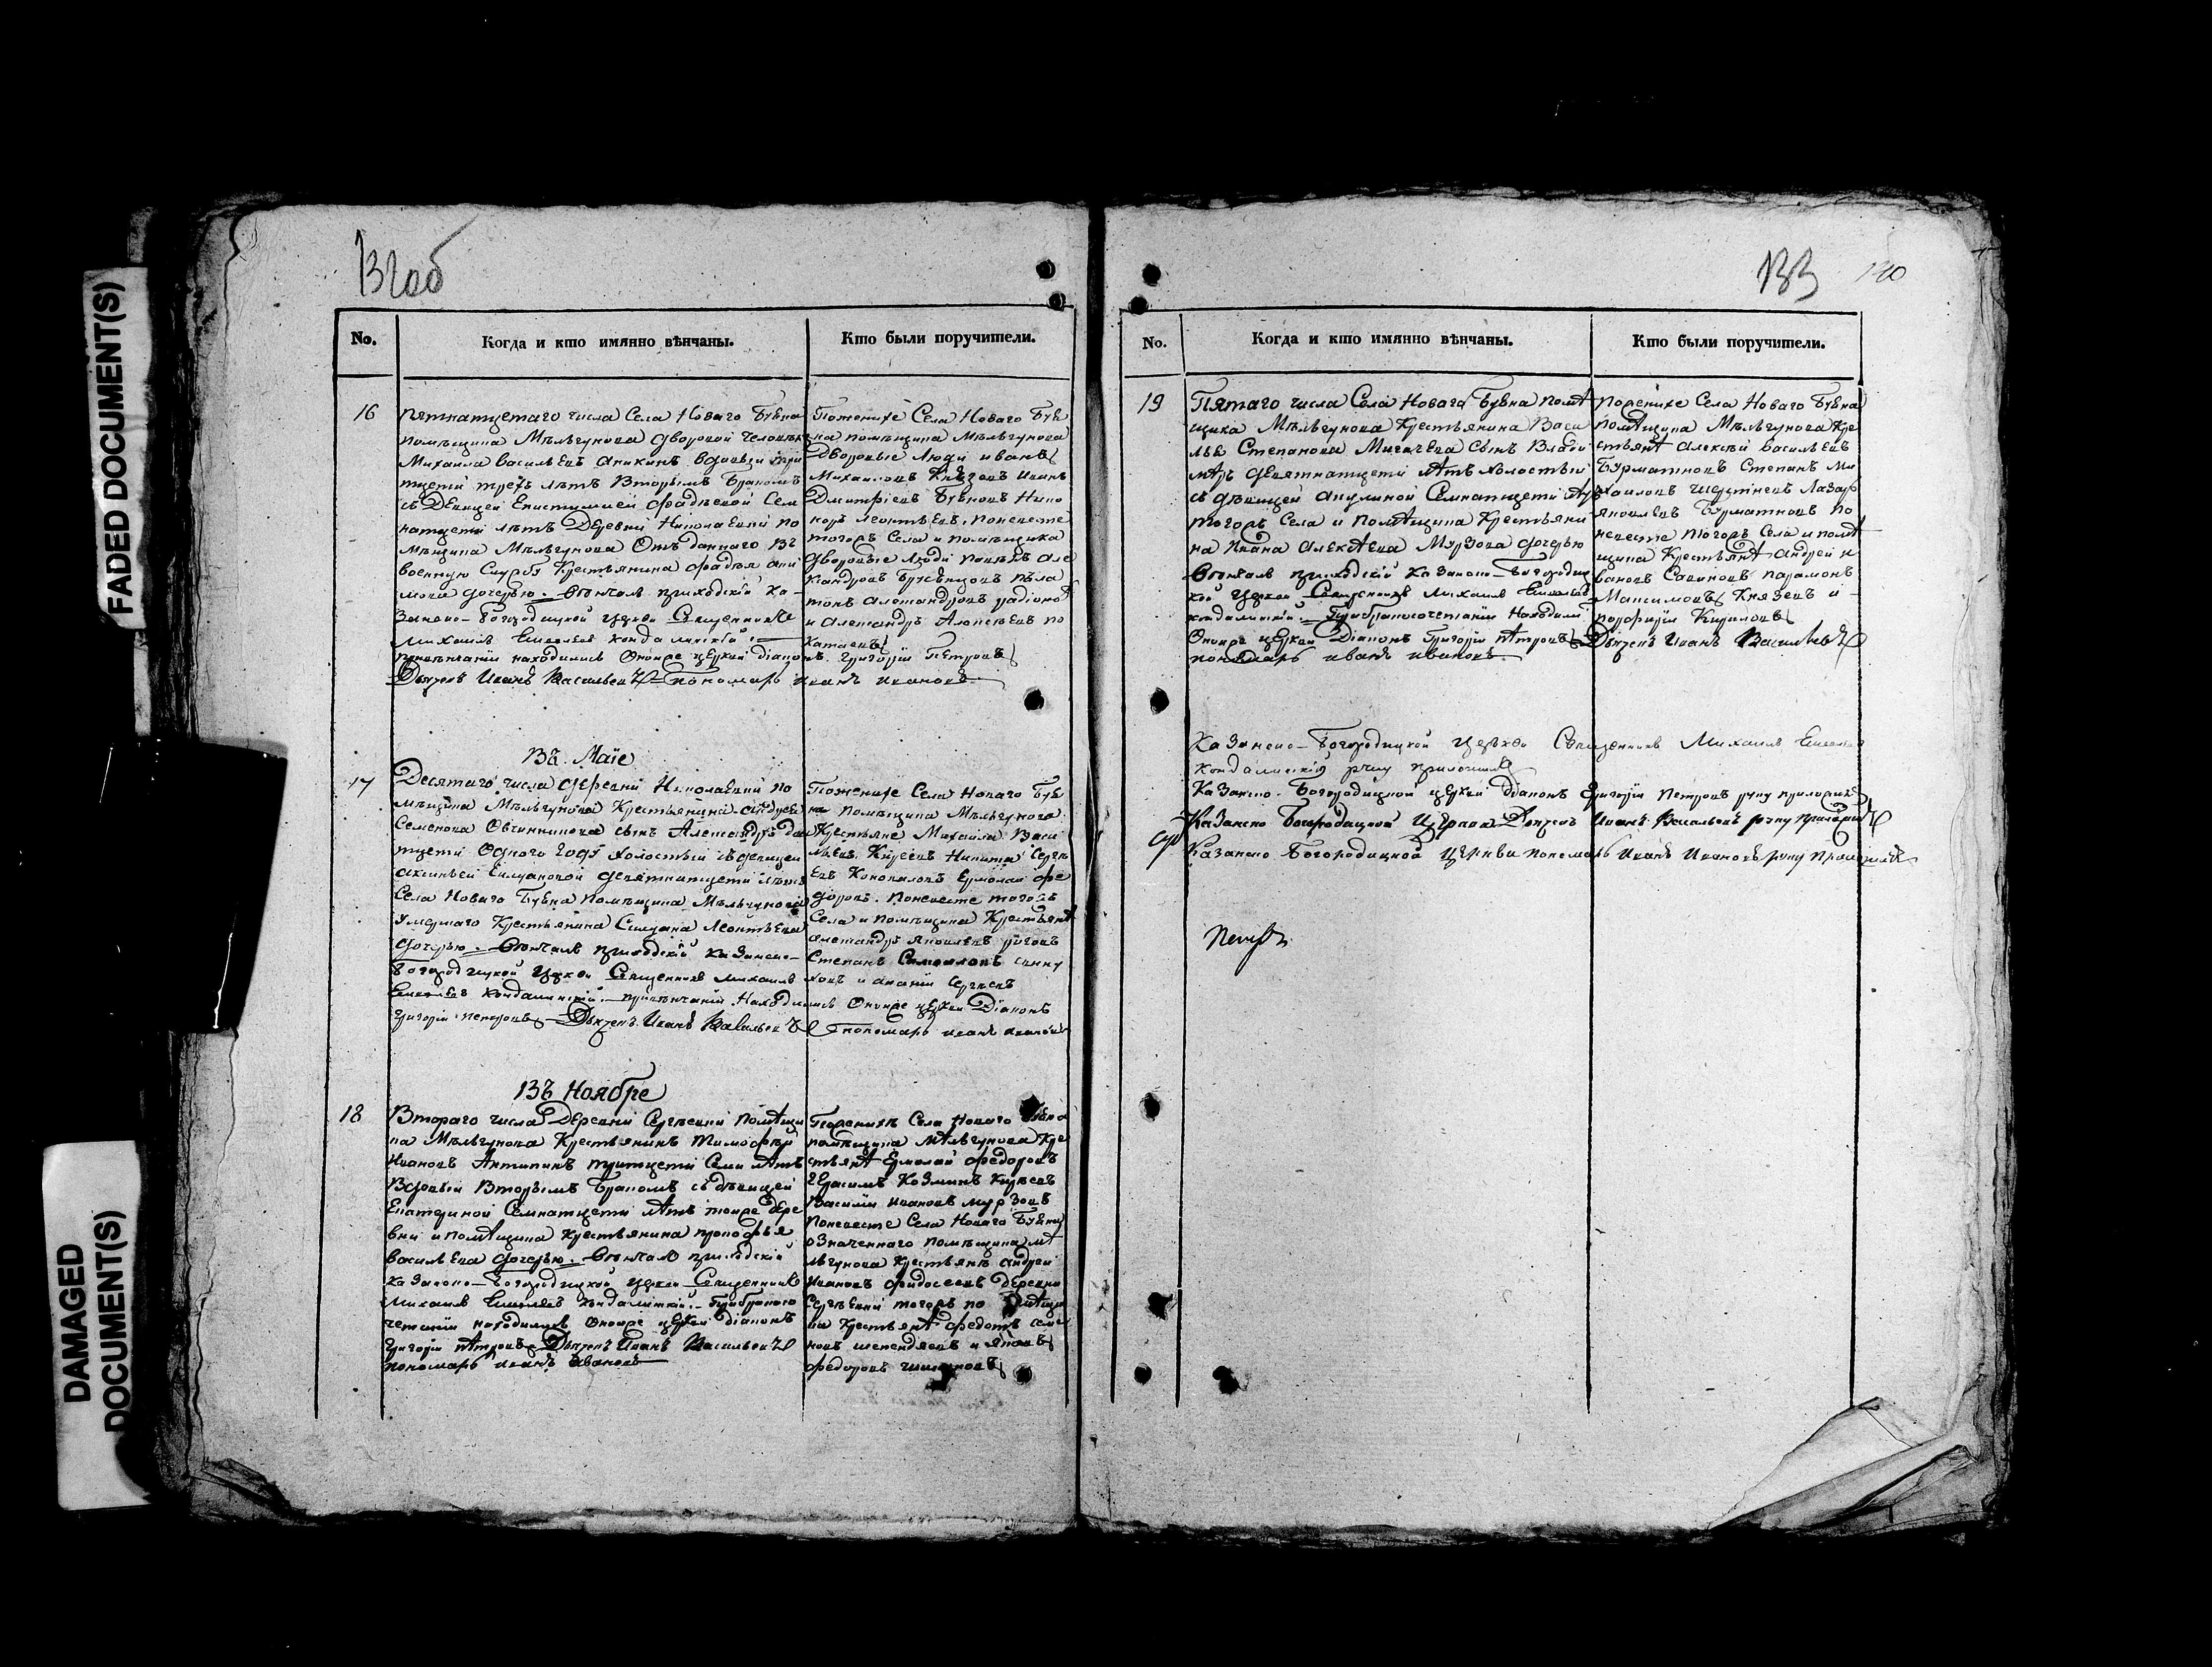 FADED DOCUMENT(S)
DAMAGED
DOCUMENT(S)
132об
No. Когда и кто имянно вѣнчаны. Кто были поручители.
16
пятнатцетаго числа Села Новаго Бувна
помѣщика Мѣльгунова дворовой человѣкъ
Михаила васильевъ аникинъ вдовый три
тцети трехъ лѣтъ Вторымъ Бракомъ
съ Девицей Епистимией фадѣевой Сем
натцети лѣтъ Деревни Николаевки по
мѣщика Мѣльгунова Отъ даннаго въ
военную Службу Крестьянина фадѣя
дочерью. Вѣнчалъ приходскій Ка-
занско-Богородицкой церкви Священникъ
Михаилъ Кондалинскій.
привѣнчаніи находились Оноиже церкви діаконъ Григорій Петровъ
Дьячекъ Иванъ Васильевъ пономарь иванъ ивановъ
Поженихе Села Новаго Був
на помѣщика Мѣльгунова
Дворовые Люди иванъ
Михаиловъ Князевъ иванъ
Дмитріевъ Бувновъ Нико
норъ леонтьевъ. Поневесте
тогожъ Села и помѣщика
дворовые Люди павелъ але
ксандровъ пла
тонъ александровъ
и Александръ по
Въ Маіе
17
Десятаго числа деревни Николаевки по
мѣщика Мѣльгунова Крестьянина андрея
Семенова Овчинникова сынъ Александръ два
тцети Одного году холостый съ девицеи
аксиньей девятнатцети лѣтъ
Села Новаго Бувна помѣщика Мѣльгунова
Умершаго Крестьянина леонтьева
дочерью. Вѣнчалъ приходскій казанско-
Богородицкой церкви Священникъ михаилъ
Кондалинскій. привѣнчаніи Находились Оноиже церкви Діаконъ
григорій петровъ Дьячекъ Иванъ Васильевъ пономарь иванъ ивановъ
Поженихе Села Новаго Був
на помѣщика Мѣльгунова
Крестьяне Михаила Васи
льевъ Киреевъ Никита Серге
евъ Коноваловъ Ермолаи фе
доровъ. поневесте тогожъ
Села и помѣщика Крестьянѣ
александръ яковлевъ
Степанъ Самоиловъ
Сергеевъ
Въ Ноябре
18
Втораго числа Деревни Сергѣевки помѣщи
ка Мѣльгунова Крестьянинъ тимофѣй
Ивановъ Антипинъ тритцети Семи лѣтъ
Вдовый Вторымъ Бракомъ съ дѣвицей
Екатериной Семнатцети лѣтъ тоиже дере
вни и помѣщика Крестьянина прокофья
васильева дочерью. Вѣнчалъ приходскій
казанско-Богородицкой церкви Священникъ
Михаилъ Кондалинскій. Прибракосо
четаніи находились Оноиже церкви діаконъ
григорій пѣтровъ Дьячекъ Иванъ Васильевъ
пономарь иванъ ивановъ
Поженихѣ Села Новаго Бувна
помѣщика мѣльгунова Кре
стьянѣ Ермолай федоровъ
герасимъ Козминъ Киреевъ
Василій ивановъ мурзовъ
поневесте Села Новаго Бувна
означеннаго помѣщика мѣ
льгунова Крестьянѣ андрей
ивановъ федосеевъ деревни
Сергѣевки тогожъ помѣщи
ка Крестьянѣ федотъ семе
новъ и яковъ
федоровъ
133 120
No. Когда и кто имянно вѣнчаны. Кто были поручители.
19
Пятаго числа Села Новаго Бувна помѣ
щика Мѣльгунова Крестьянина Васи
лья Степанова Мигачева Сынъ Влади
мѣръ девятнатцети лѣтъ холостый
съ дѣвицей акулиной Семнатцети лѣтъ
тогожъ Села и помѣщика Крестьяни
на ивана алексѣева Мурзова дочерью
Вѣнчалъ приходскій Казанско-Богородиц
кой церкви Священникъ Михаилъ
кондалинскій. Прибракосочетаніи Находили
Оноиже церкви Діаконъ Григорій пѣтровъ Дьячекъ Иванъ Васильевъ
пономарь иванъ ивановъ
поженихе Села Новаго Бувна
помѣщика Мѣльгунова Кре
стьянѣ алексѣй васильевъ
Бурматновъ Степанъ Ми
хаиловъ Лазарь
яковлевъ Бурматновъ по
невесте тогожъ Села и помѣ
щика Крестьянѣ андрей и
вановъ Савиновъ парамонъ
Максимовъ Князевъ и
порфирій Кириловъ
Казанско-Богородицкой церкви Священникъ Михаилъ
кондалинскій руку приложилъ
Казанско-Богородицкой церкви діаконъ Григорій Петровъ руку приложилъ
Казанско Богородицкой Церкви Дьячекъ Иванъ Васильевъ руку приложилъ
Казанско Богородицкой церкви пономарь Иванъ Ивановъ руку приложилъ